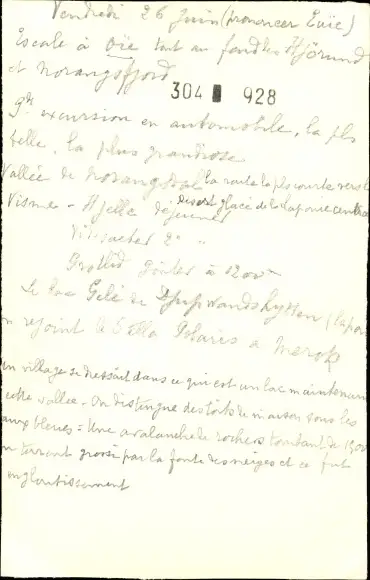 Vendredi 26 Juin (prononcer Euïe)
Escale à Oïe tout au fond des Hjörund
et Norangsfjord
304 928
Gde excursion en automobile, la pls
belle, la plus grandiose
Vallée de Norangsdal la route la pls courte vers le
Desert glacé de la Laponie centrale
Visnes - Hjelle dejeuner
Videsaeter 2e "
Grotlid goûter à 1200m
Le lac Gelé de Djupvandshytten (Lapon
on rejoint le Stella Polaris a Merok
un village se dressait dans ce qui est un lac maintenant
cette vallée - On distingue des toits de maison sous les
eaux bleues = Une avalanche de rochers tombant de 1500
un torrent grossi par la fonte des neiges et ce fut
engloutissement